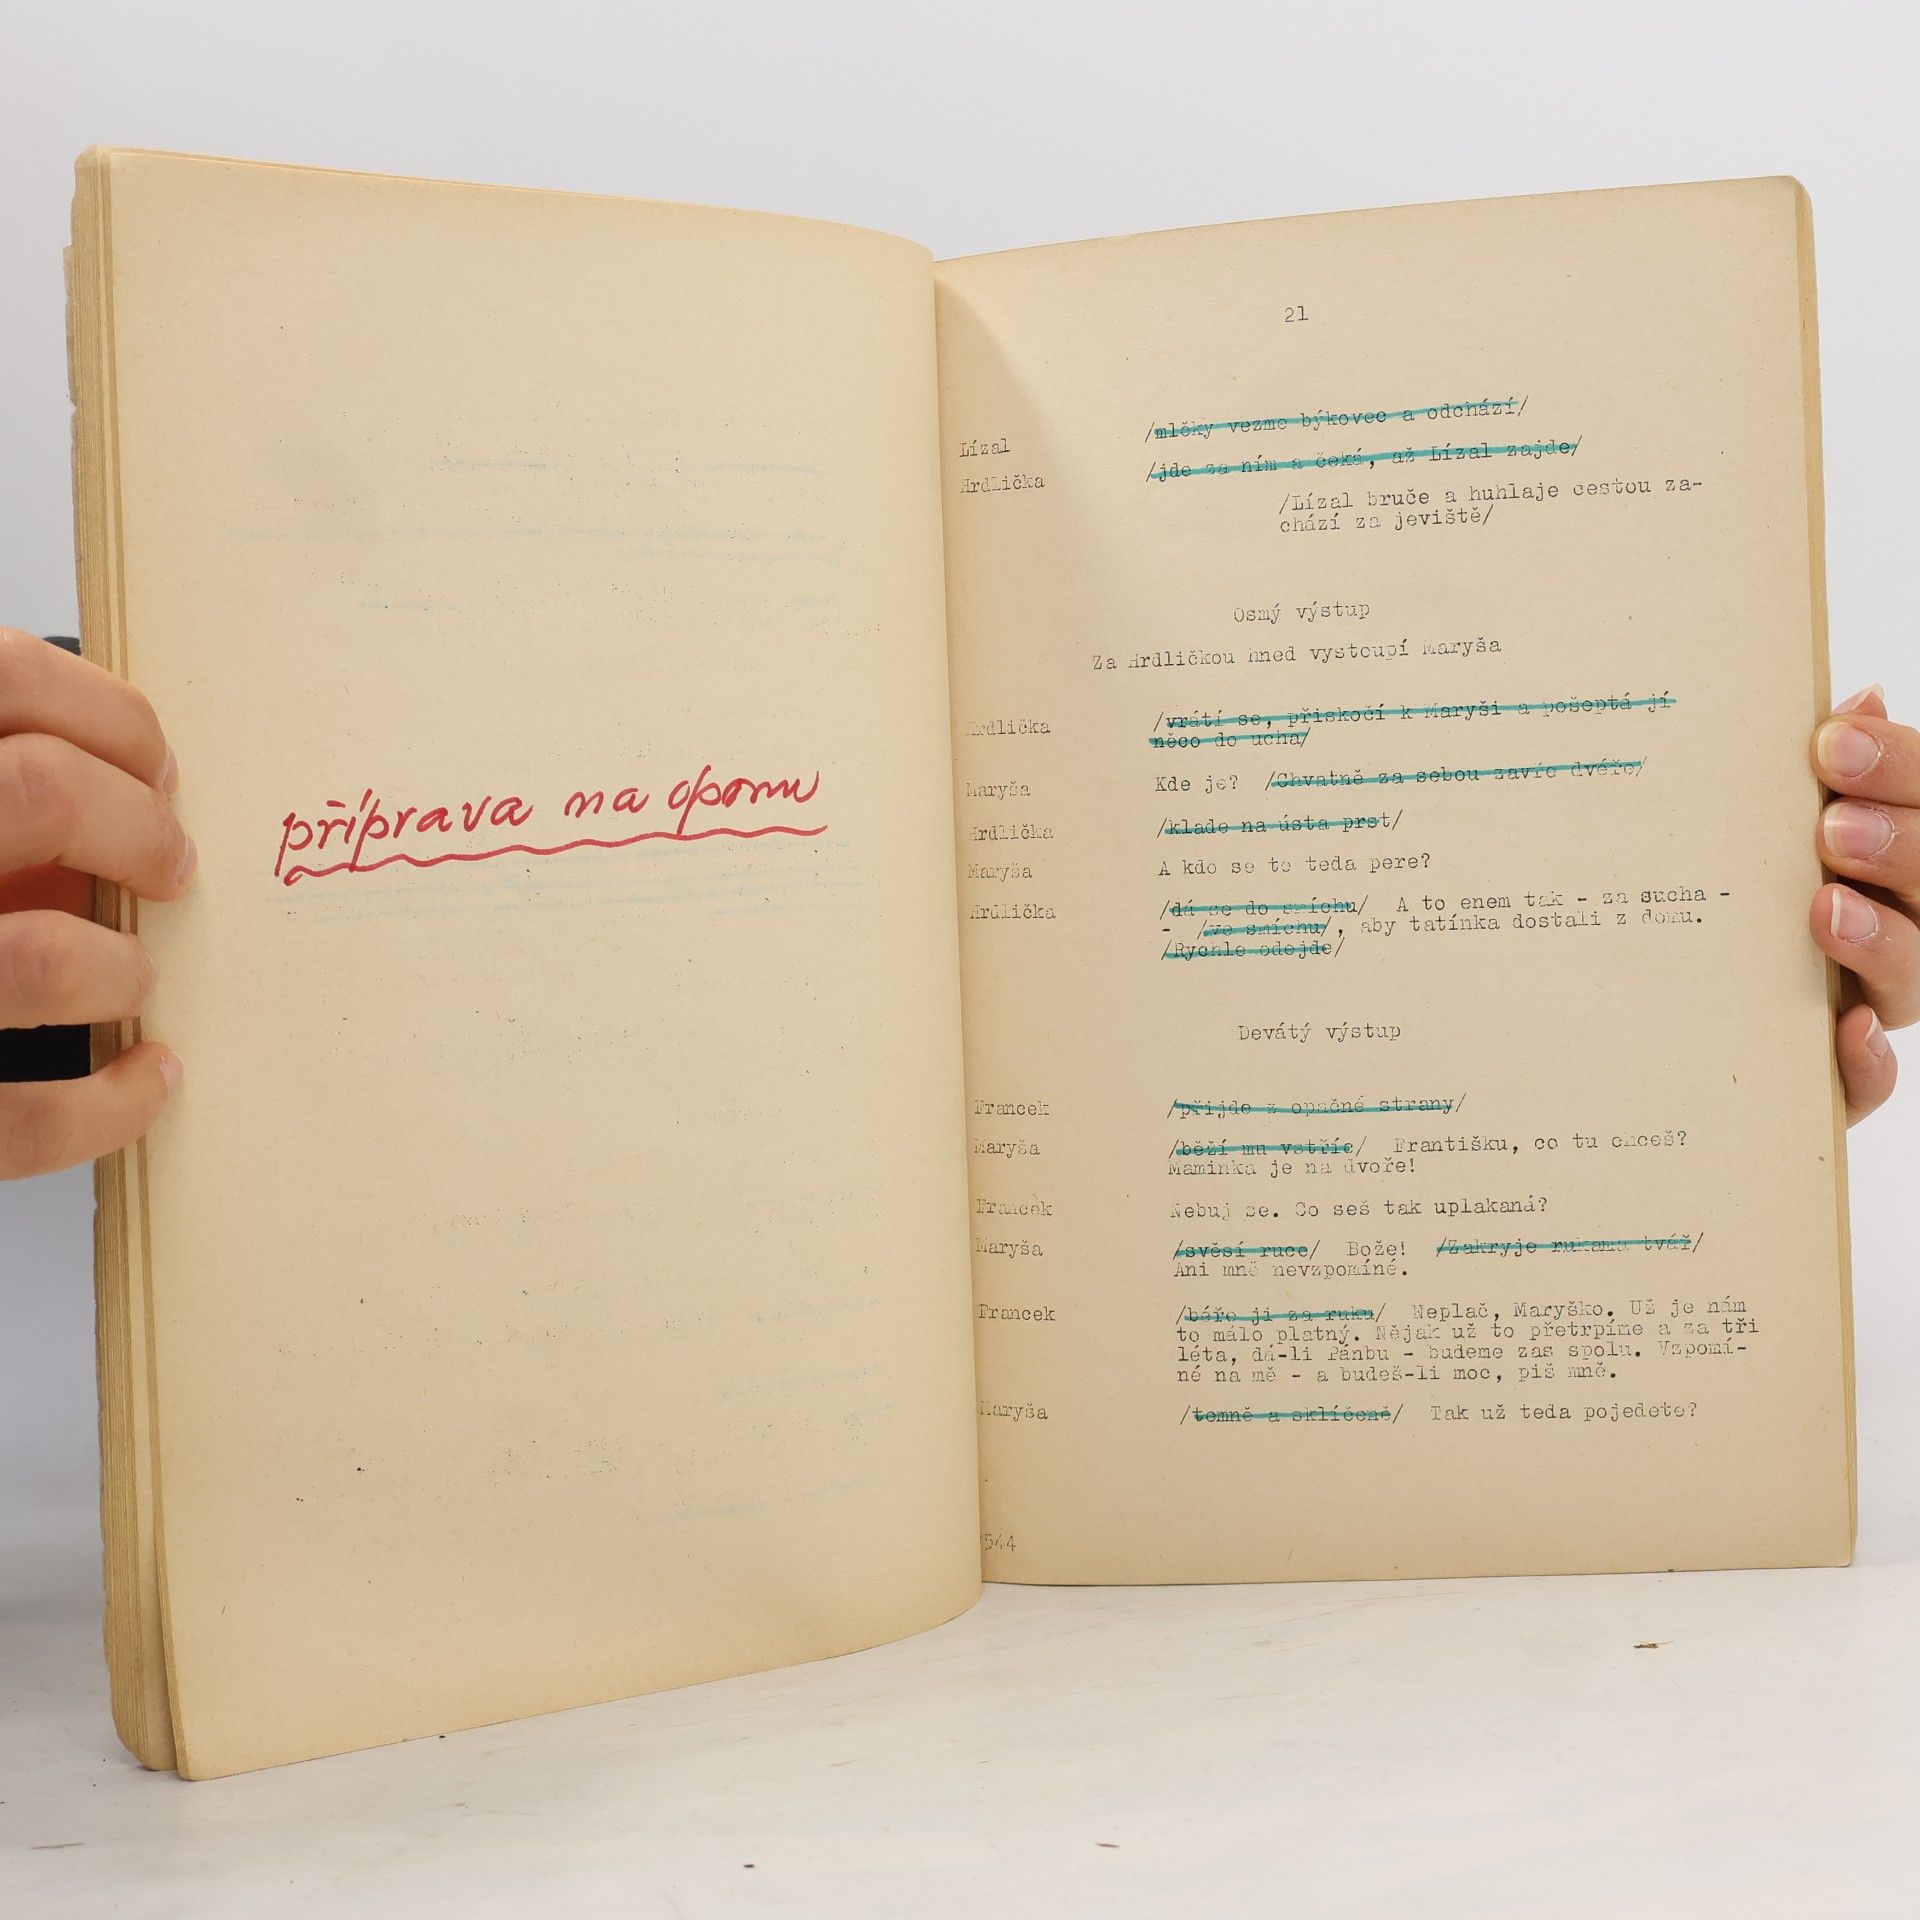 příprava na oponu
21
Lízal /mlčky vezme býkovec a odchází/
Hrdlička /jde za ním a čeká, až Lízal zajde/
/Lízal bruče a huhlaje cestou za-
chází za jeviště/
Osmý výstup
Za Hrdličkou hned vystoupí Maryša
Hrdlička /vrátí se, přiskočí k Maryši a pošeptá jí
něco do ucha/
Maryša Kde je? /Chvatně za sebou zavře dvéře/
Hrdlička /klade na ústa prst/
Maryša A kdo se to teda pere?
Hrdlička /dá se do smíchu/ A to enem tak - za sucha -
- /ve smíchu/, aby tatínka dostali z domu.
/Rychle odejde/
Devátý výstup
Francek /přijde z opačné strany/
Maryša /běží mu vstříc/ Františku, co tu chceš?
Maminka je na dvoře!
Francek Nebuj se. Co seš tak uplakaná?
Maryša /svěsí ruce/ Bože! /Zakryje rukama tvář/
Ani mně nevzpomíné.
Francek /béře ji za ruku/ Neplač, Maryško. Už je nám
to málo platný. Nějak už to přetrpíme a za tři
léta, dá-li Pánbu - budeme zas spolu. Vzpomí-
né na mě - a budeš-li moc, piš mně.
Maryša /temně a sklíčeně/ Tak už teda pojedete?
544